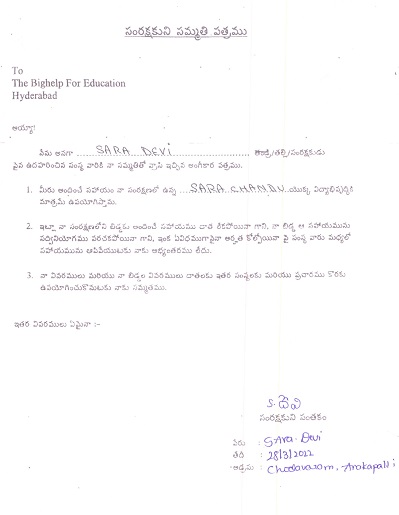 సంరక్షకుని సమ్మతి పత్రము
To
The Bighelp For Education
Hyderabad
అయ్యా!
నేను అనగా SARA DEVI తండ్రి/తల్లి/సంరక్షకుడు
పైన ఉదహరించిన సంస్థ వారికి నా సమ్మతితో వ్రాసి ఇచ్చిన అంగీకార పత్రము.
1. మీరు అందించే సహాయం నా సంరక్షణలో ఉన్న SARA CHANDU యొక్క విద్యాభివృద్ధికి
మాత్రమే ఉపయోగిస్తాను.
2. ఇట్లా నా సంరక్షణలోని బిడ్డకు అందించే సహాయము దాత లేకపోయినా గాని, నా బిడ్డ ఆ సహాయమును
సద్వినియోగము పరచకపోయినా గాని, ఇంక ఏవిధముగానైనా అర్హత కోల్పోయినా పై సంస్థ వారు మధ్యలో
సహాయమును ఆపివేయుటకు నాకు అభ్యంతరము లేదు.
3. నా వివరములు మరియు నా బిడ్డల వివరములు దాతలకు ఇతర సంస్థలకు మరియు ప్రచారము కొరకు
ఉపయోగించుకొనుటకు నాకు సమ్మతము.
ఇతర వివరములు ఏమైనా :-
S. దేవి
సంరక్షకుని సంతకం
పేరు : SARA Devi
తేది : 28/3/2022
అడ్రసు : Choodavaram, Arakapalli